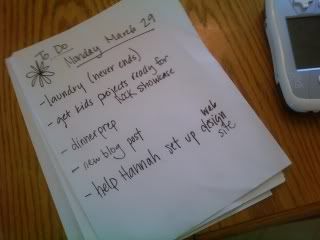 To Do
Monday March 29
- laundry (never ends)
- get kids projects ready for
rock showcase
- dinner prep
- new blog post
- help Hannah set up web
design
site